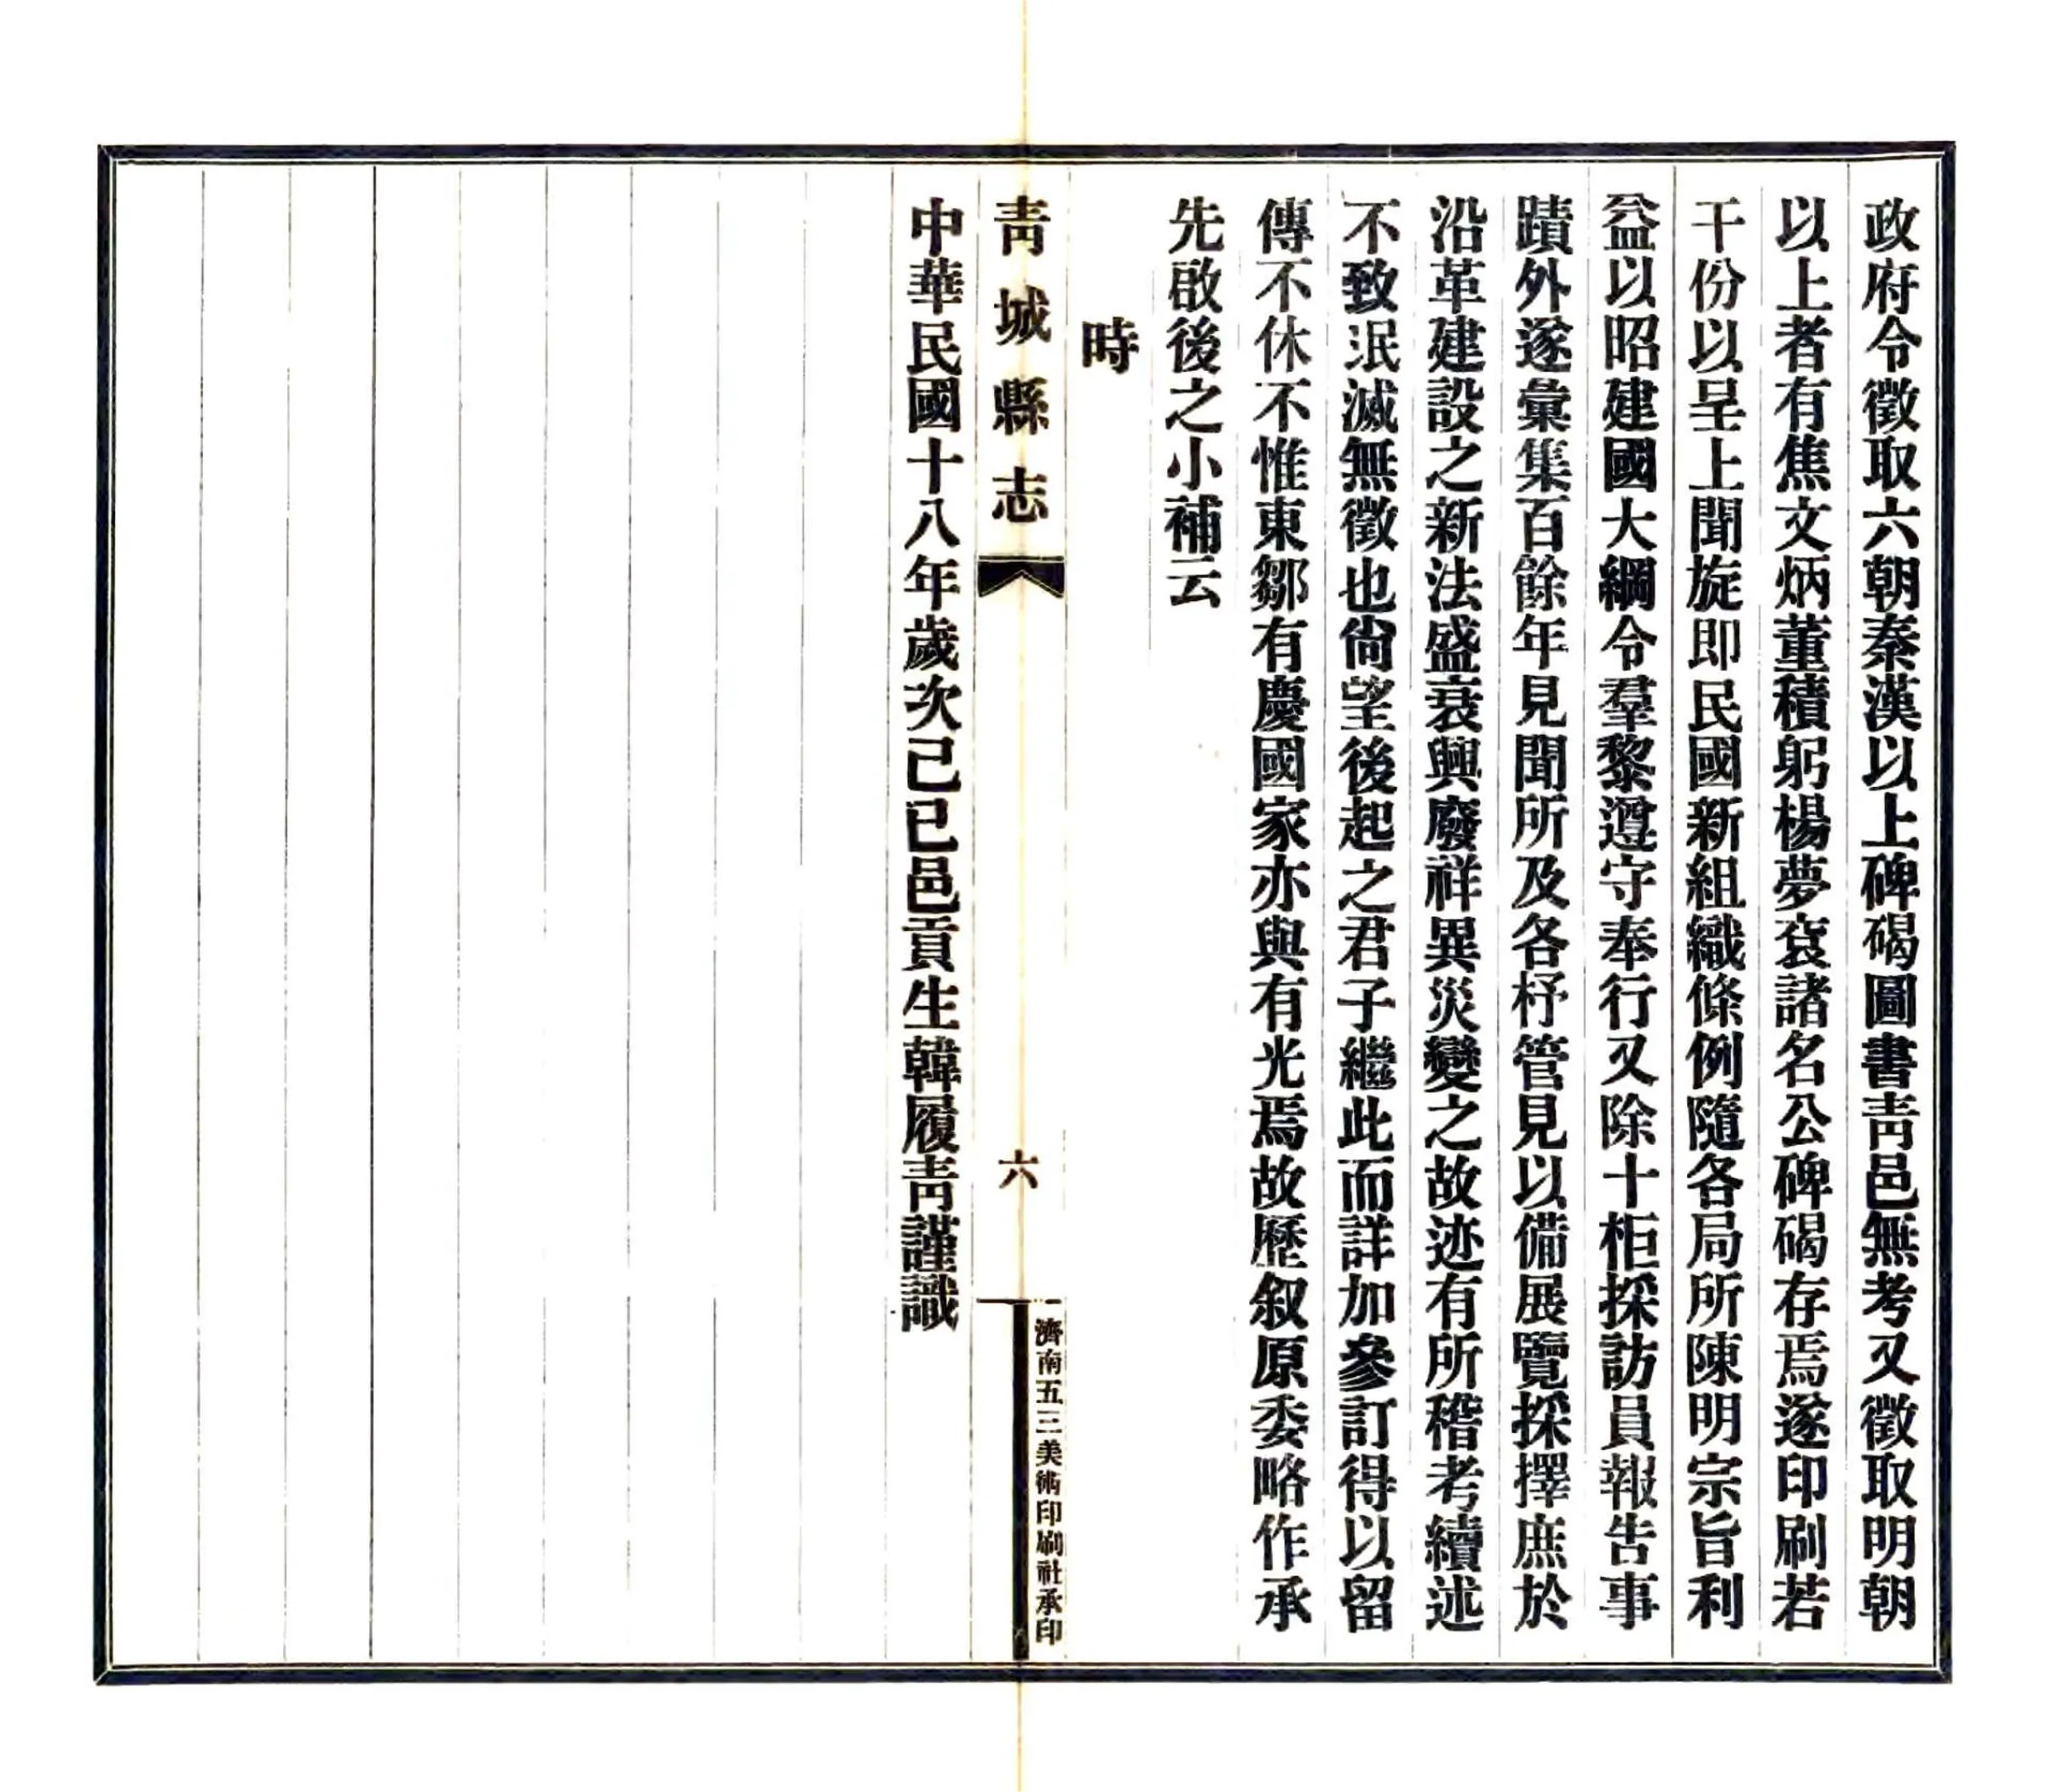 政府令徵取六朝秦漢以上碑碣圖書靑邑無考又徵取明朝
以上者有焦文炳董積躬楊夢袞諸名公碑碣存焉遂印刷若
干份以呈上聞旋即民國新組織條例隨各局所陳明宗旨利
益以昭建國大綱令羣黎遵守奉行又除十柜採訪員報告事
蹟外遂彙集百餘年見聞所及各杼管見以備展覽採擇庶於
沿革建設之新法盛衰興廢祥異災變之故迹有所稽考續述
不致泯滅無徵也尙望後起之君子繼此而詳加參訂得以留
傳不休不惟東鄒有慶國家亦與有光焉故歷叙原委略作承
先啟後之小補云
時
靑城縣志
六
濟南五三美術印刷社承印
中華民國十八年歲次己巳邑貢生韓履靑謹識